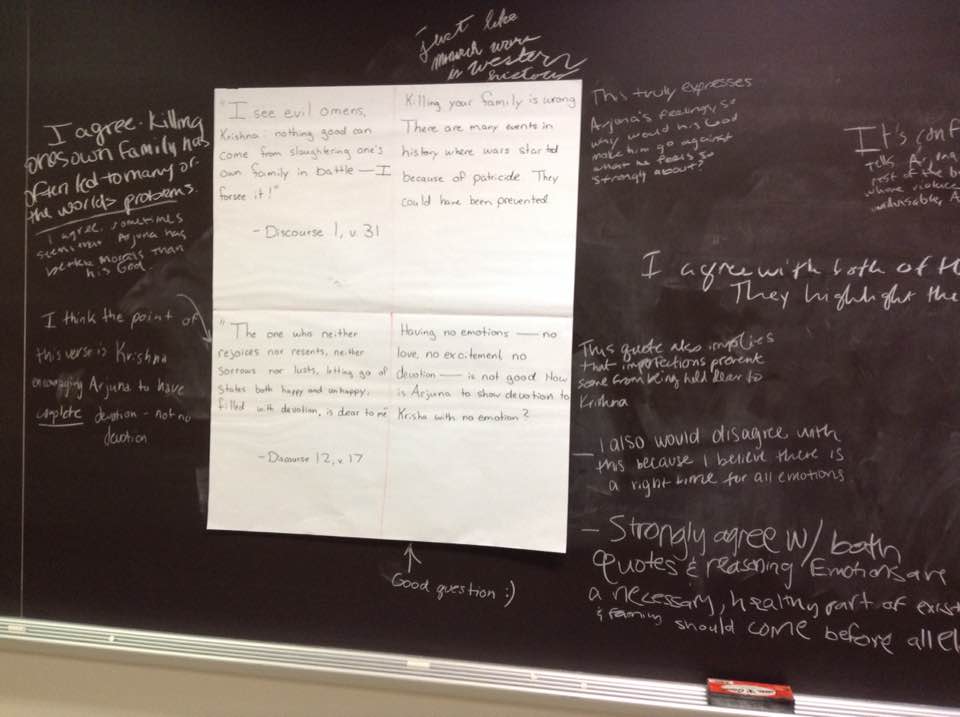 Just like
monarch wars
in western
history
I agree. Killing
ones own family has
often led to many of
the worlds problems.
I agree, sometimes
seems like Arjuna has
better morals than
his God.
I think the point of
this verse is Krishna
encouraging Arjuna to have
complete devotion - not no
devotion
"I see evil omens,
Krishna: nothing good can
come from slaughtering one's
own family in battle — I
forsee it!"
- Discourse 1, v. 31
Killing your family is wrong
There are many events in
history where wars started
because of patricide They
could have been prevented
"The one who neither
rejoices nor resents, neither
sorrows nor lusts, letting go of
states both happy and unhappy,
filled with devotion, is dear to me"
- Discourse 12, v. 17
Having no emotions — no
love, no excitement no
devotion — is not good How
is Arjuna to show devotion to
Krisha with no emotion?
Good question :)
This truly expresses
Arjuna's feelings, so
why would his God
make him go against
what he feels so
strongly about?
It's conf
tells Arjuna
rest of the b
where violence
A
I agree with both of th
They highlight the
This quote also implies
that imperfections prevent
some from being held dear to
Krishna
- I also would disagree with
this because I believe there is
a right time for all emotions
- Strongly agree w/ both
quotes & reasoning Emotions are
a necessary, healthy part of exist
& family should come before all el